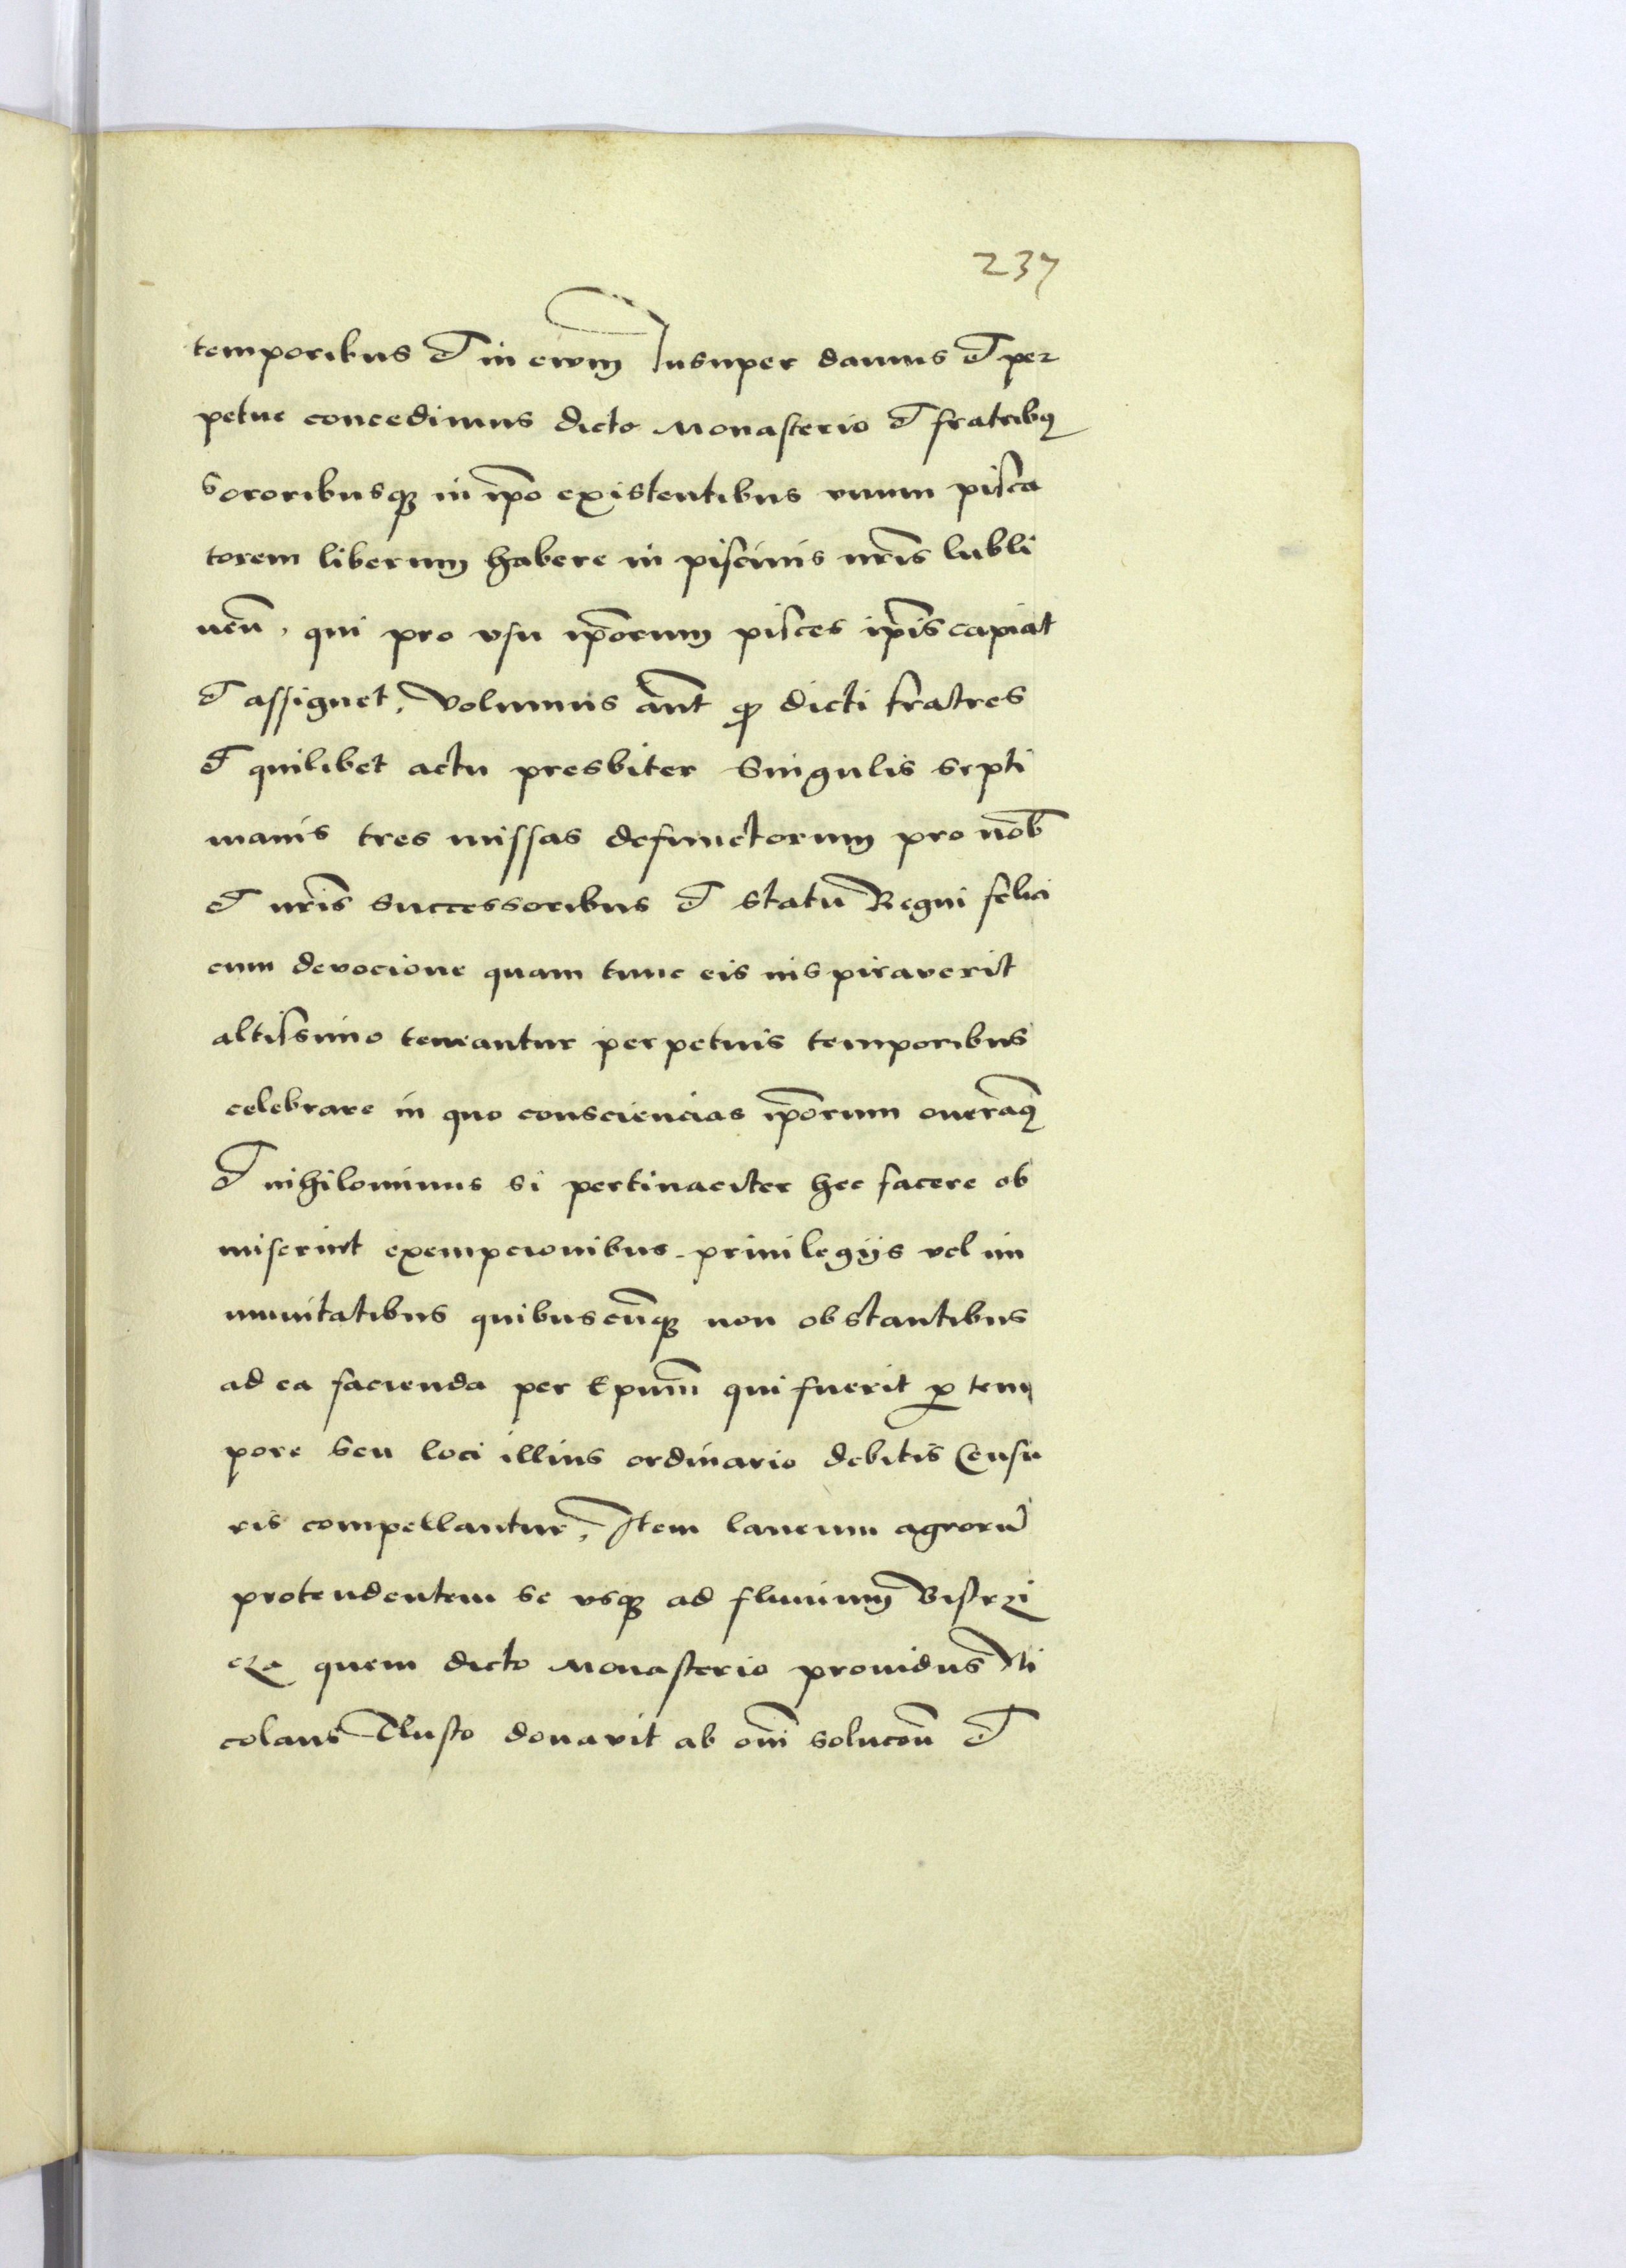 237
temporibus et in ewm Insuper damus et per
petue concedimus dicto Monasterio et fratribꝫ
Sororibusqꝫ in ip̄o existentibus vnum pisca
torem liberum habere in piscinis nr̄is lubli
nen̄, qui pro vsu ip̄orum pisces ip̄is capiat
et assignet, Volumus aut̄ ꝙ dicti fratres
et quilibet actu presbiter Singulis septi
manis tres missas defunctorum pro nob̄
et nr̄is Successoribus et statū Regni felici
cum devocione quam tunc eis inspiraverit
altissimo teneantur perpetuis temporibus
celebrare in quo consciencias ip̄orum oneramꝰ
Et nihilominus si pertinaciter hec facere ob
miserint exempcionibus privilegijs vel im
munitatibus quibuscūqꝫ non obstantibus
ad ea facienda per Ep̄um qui fuerit ꝓ tem
pore seu loci illius ordinario debitis Censu
ris compellantur, Item laneum agrorū
protendentem se vsqꝫ ad fluuium Bistrzi
cza quem dicto Monasterio prouidus Ni
colaus Tlusto donavit ab om̄i soluc̄on̄ et